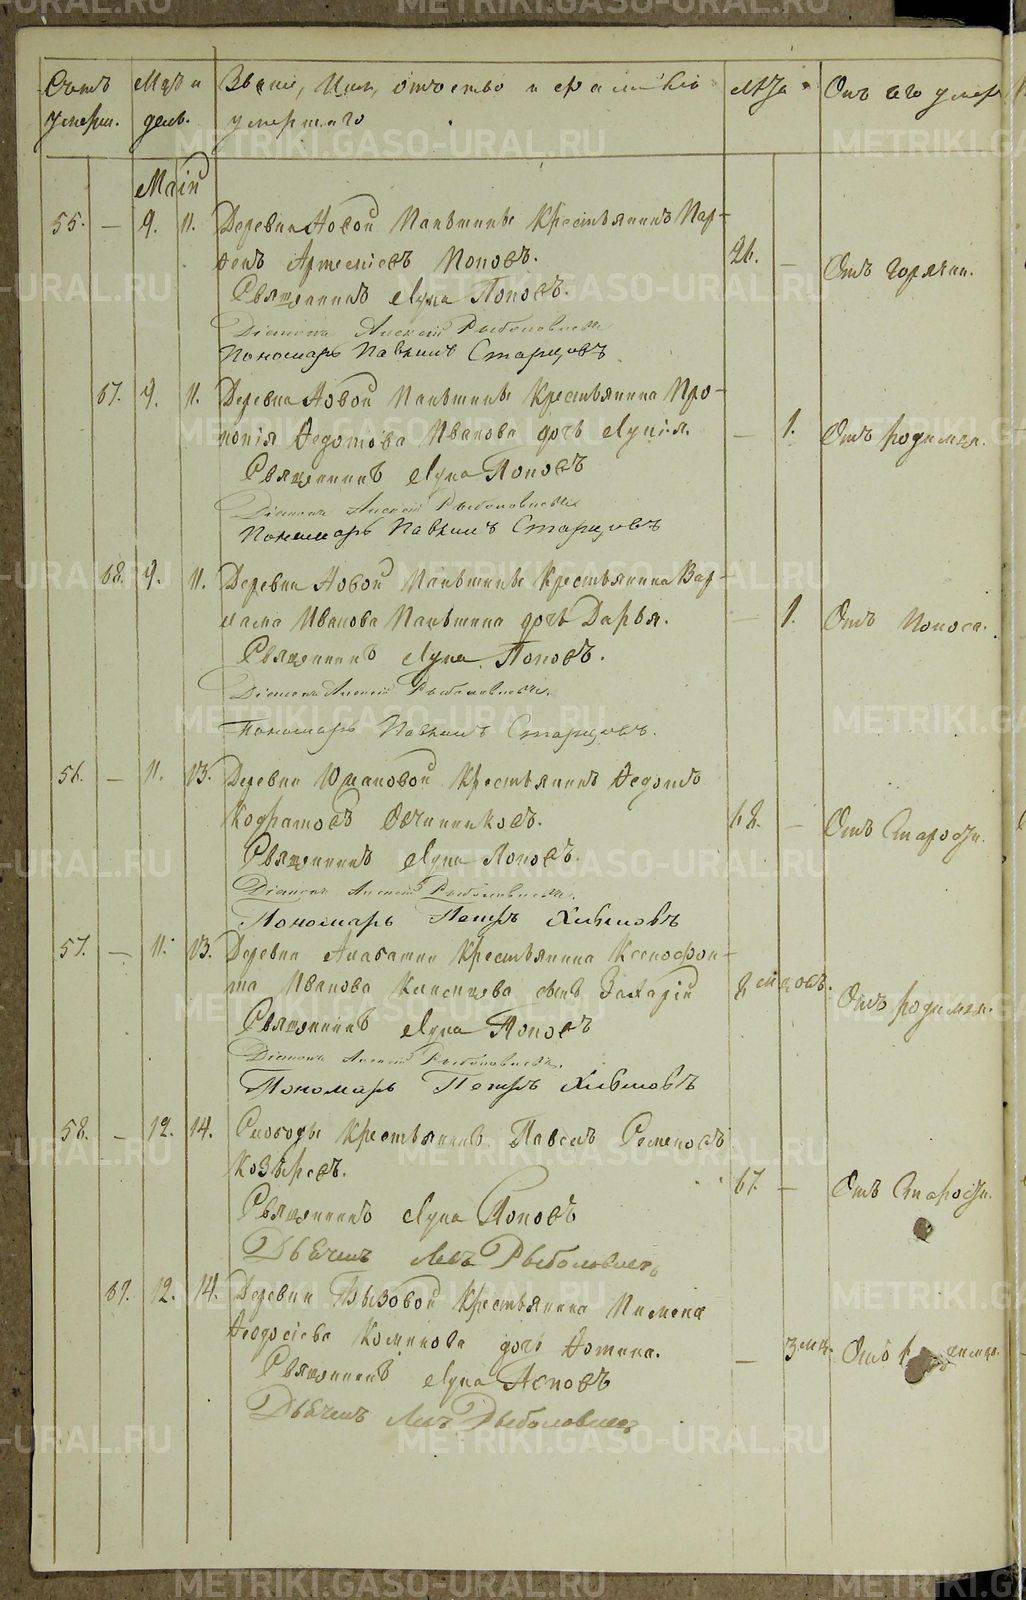 Счетъ Мць и Званіе, Имя, отчество и фамилія Лѣта Отъ чего умер
умерш. день. умершаго
Маій
55. — 9. 11. Деревни Новой Паньшины Крестьянинъ Пар-
фенъ Артеміевъ Поповъ. 26. — Отъ горячки.
Священникъ Лука Поповъ.
Діаконъ Алексій Рыболовлевъ
Пономарь Павлинъ Старцовъ
67. 9. 11. Деревни Новой Паньшины Крестьянина Про-
копія Федотова Иванова дочь Лукія. — 1. Отъ родимца.
Священникъ Лука Поповъ
Діаконъ Алексій Рыболовлевъ
Пономарь Павлинъ Старцовъ
68. 9. 11. Деревни Новой Паньшины Крестьянина Вар-
лама Иванова Паньшина дочь Дарья. — 1. Отъ поноса.
Священникъ Лука Поповъ.
Діаконъ Алексій Рыболовлевъ.
Пономарь Павлинъ Старцовъ.
56. — 11. 13. Деревни Юлаковой Крестьянинъ Федотъ
Кодратовъ Овчинниковъ. 62. — Отъ Старости.
Священникъ Лука Поповъ.
Діаконъ Алексій Рыболовлевъ.
Пономарь Петръ Хивиловъ
57. — 11. 13. Деревни Алабашки Крестьянина Ксенофон-
та Иванова сынъ Захарій Отъ родимца.
Священникъ Лука Поповъ
Діаконъ Алексій Рыболовлевъ.
Пономарь Петръ Хивиловъ
58. — 12. 14. Слободы Крестьянинъ Павелъ Семеновъ
Козыревъ. 67. — Отъ Старости.
Священникъ Лука Поповъ
Дьячекъ Левъ Рыболовлевъ
69. 12. 14. Деревни Крестьянина Пимена
Феодосіева дочь Фотина. — 3 мц. Отъ
Священникъ Лука Поповъ
Дьячекъ Левъ Рыболовлевъ
METRIKI.GASO-URAL.RU